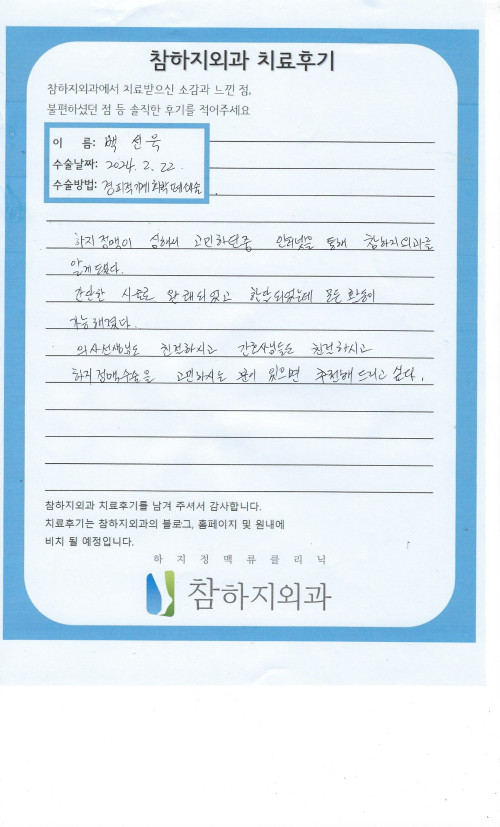 참하지외과 치료후기
참하지외과에서 치료받으신 소감과 느낀 점,
불편하셨던 점 등 솔직한 후기를 적어주세요
이 름: 백 선 욱
수술날짜: 2024. 2. 22.
수술방법: 경피적기계화학폐색술
하지정맥이 심해서 고민하던중 인터넷을 통해 참하지외과를
알게 되었다.
간단한 시술로 완쾌되었고 한달 되었는데 모든 활동이
가능해졌다.
의사선생님도 친절하시고 간호사님들도 친절하시고
하지정맥수술을 고민하시는 분이 있으면 추천해 드리고 싶다.
참하지외과 치료후기를 남겨 주셔서 감사합니다.
치료후기는 참하지외과의 블로그, 홈페이지 및 원내에
비치 될 예정입니다.
하지정맥류클리닉
참하지외과